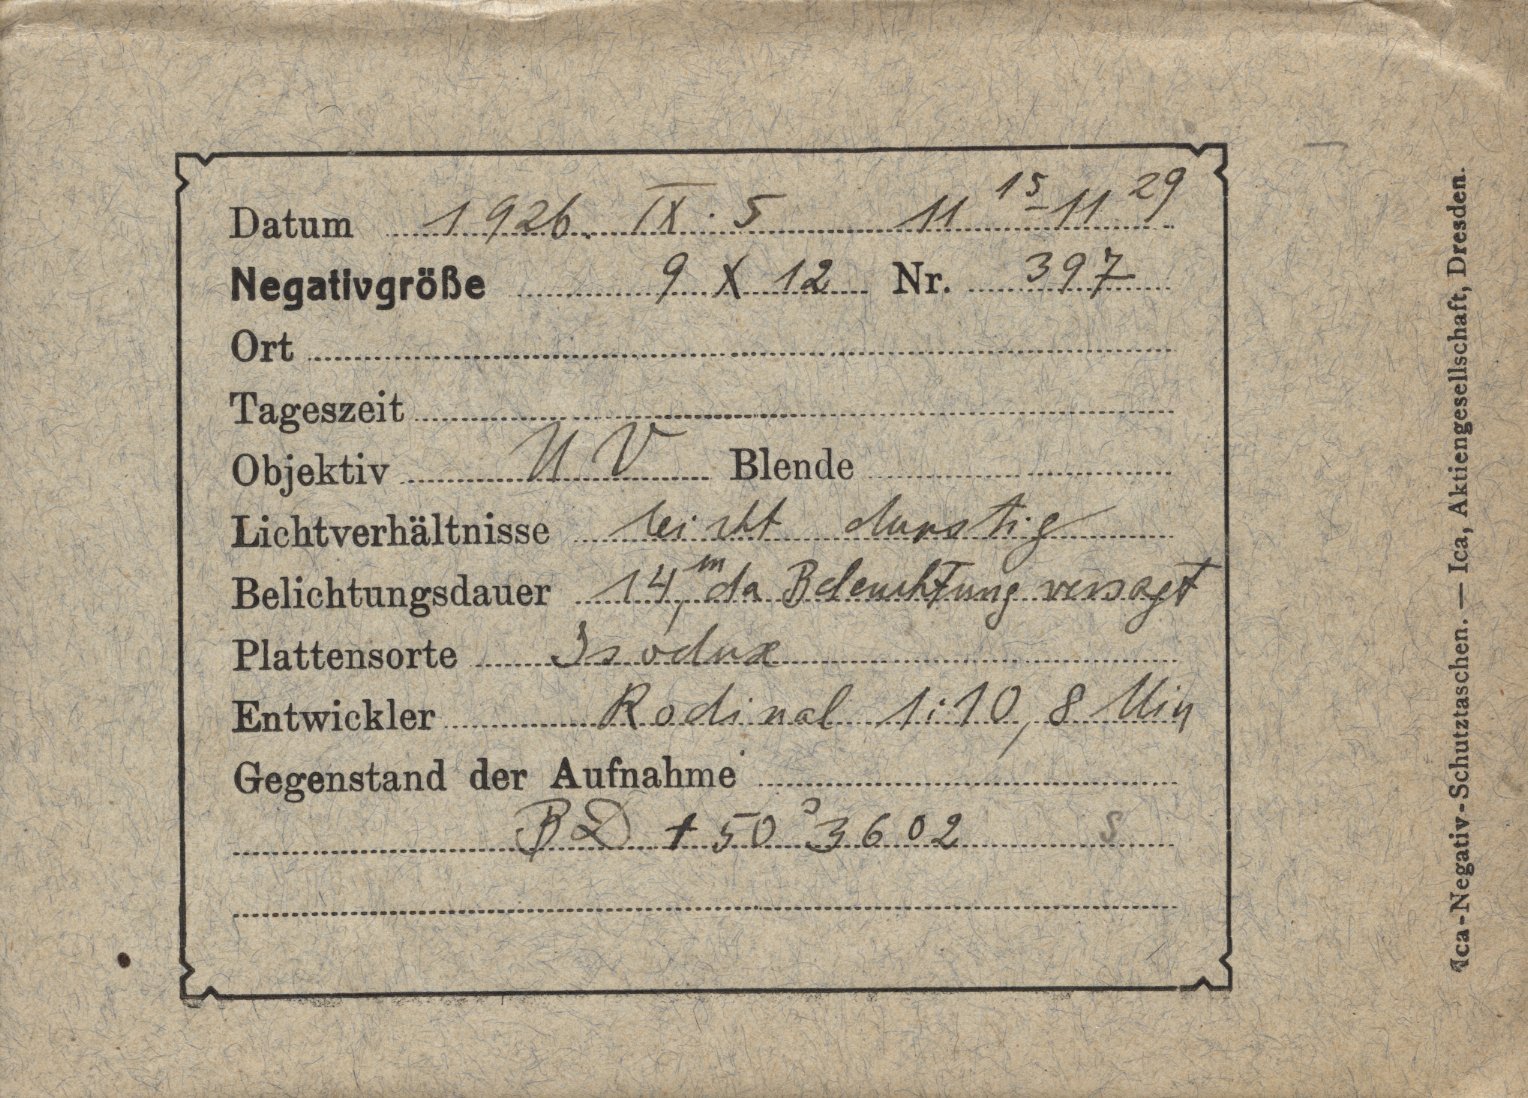 Datum 1926. IX. 5 11 15 - 11 29
Negativgröße 9 X 12 Nr. 397
Ort
Tageszeit
Objektiv UV Blende
Lichtverhältnisse leicht dunstig
Belichtungsdauer 14m, da Beleuchtung versagt
Plattensorte Isodux
Entwickler Rodinal 1:10, 8 Min
Gegenstand der Aufnahme
BD + 50° 3602 S
Ica-Negativ-Schutztaschen. — Ica, Aktiengesellschaft, Dresden.